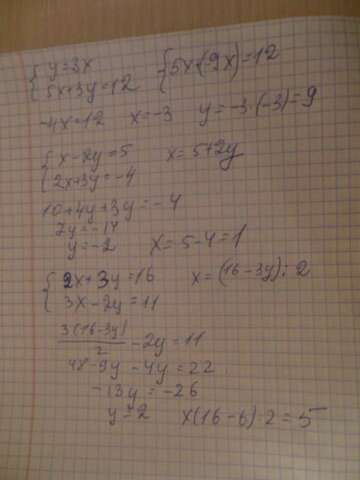 { y=3x
{ 5x+3y=12 { 5x+(9x)=12
-4x=12 x=-3 y=-3·(-3)=9
{ x-2y=5 x=5+2y
{ 2x+3y=-4
10+4y+3y=-4
7y=-14
y=-2 x=5-4=1
{ 2x+3y=16 x=(16-3y):2
{ 3x-2y=11
3(16-3y)/2 -2y=11
48-9y-4y=22
-13y=-26
y=2 x(16-6)·2=5